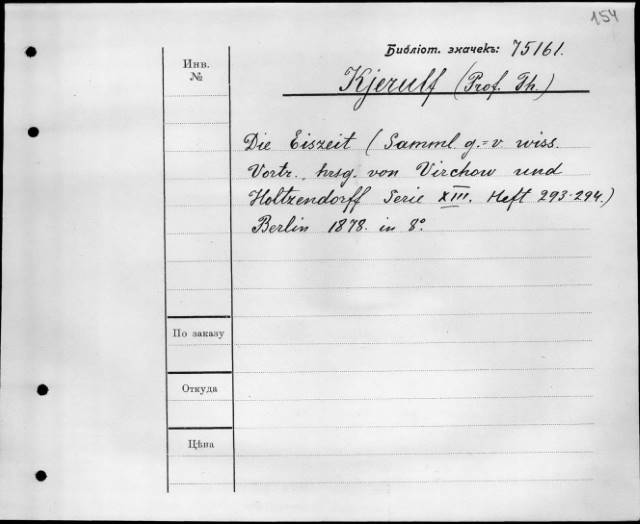 154
Библіот. значекъ: 75161.
Kjerulf (Prof. Th.)
Инв.
№
Die Eiszeit (Samml. g.=v. wiss.
Vortr. hrsg. von Virchow und
Holtzendorff Serie XIII. Heft 293-294.)
Berlin 1878. in 8°.
По заказу
Откуда
Цѣна